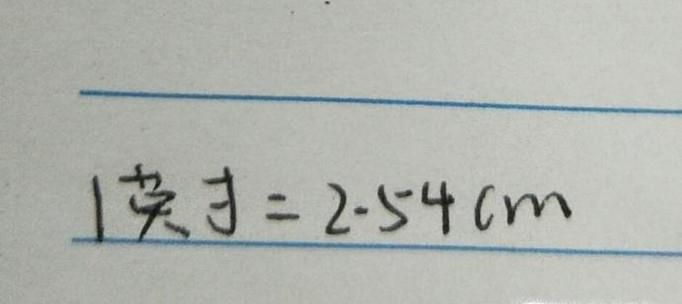 1英寸=2.54cm